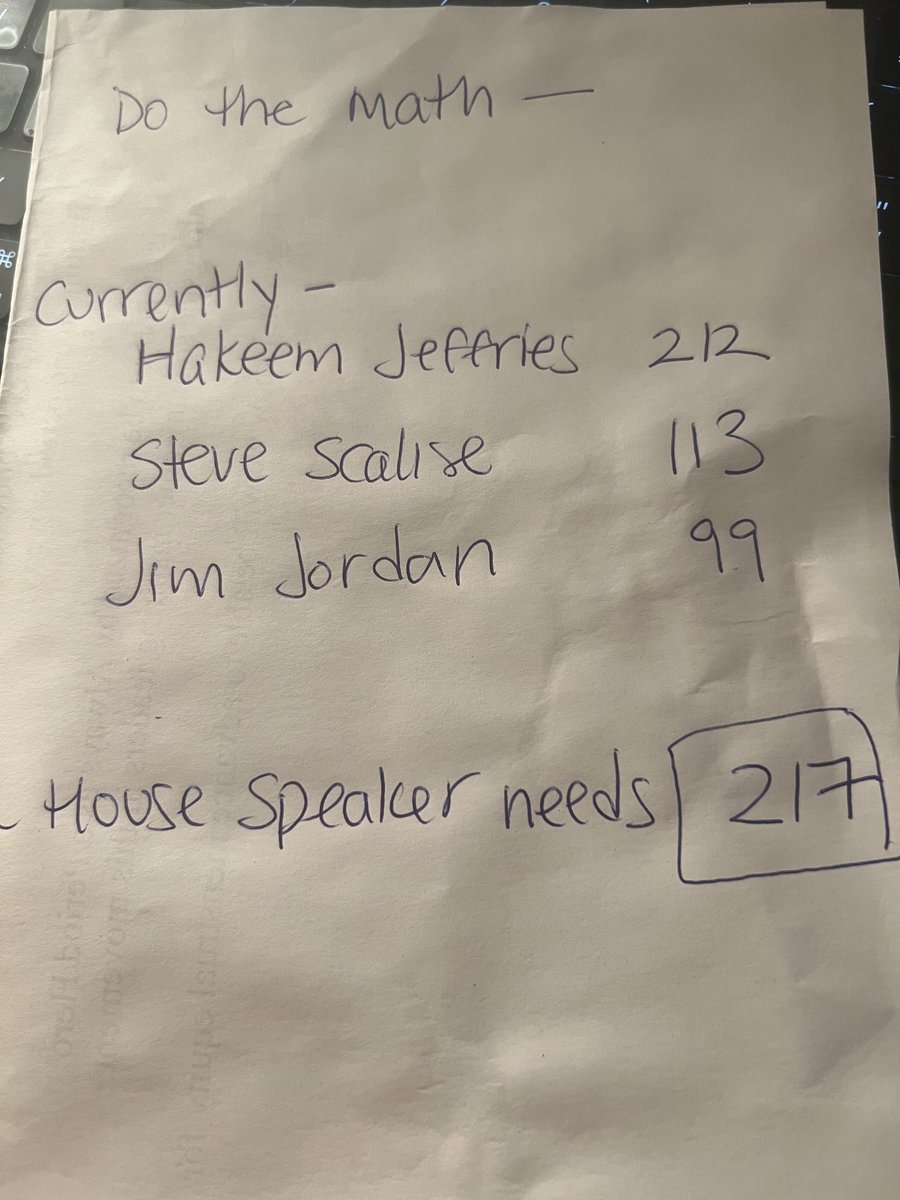 Do the math —
Currently -
Hakeem Jeffries 212
Steve Scalise 113
Jim Jordan 99
House Speaker needs 217